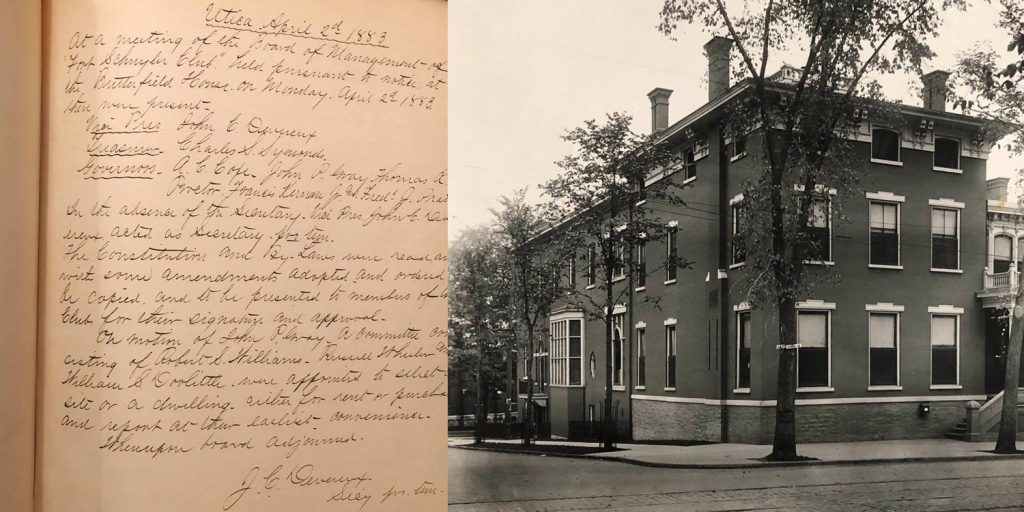 Utica April 2d 1883
At a meeting of the Board of Management of
"Fort Schuyler Club" held pursuant to notice, at
the Butterfield House on Monday, April 2d 1883
there were present.
Vice Pres John C Devereux
Treasurer Charles S. Symonds
Governors. A. C. Coxe, John P. Gray, Thomas R
Proctor, Francis Kernan Jr. Fredk J.
In the absence of the Secretary, Vice Pres. John C.
acted as Secretary pro tem.
The Constitution and By-Laws were read, an
with some amendments adopted and ordered
be copied, and to be presented to members of
Club for their signature and approval.
On motion of John P. Gray A committee con
sisting of Robert S. Williams, Russell Wheeler an
William S. Doolittle were appointed to select
site or a dwelling either for rent or purcha
and report at their earliest convenience.
Whereupon board adjourned.
J. C. Devereux
Secy pro. tem.